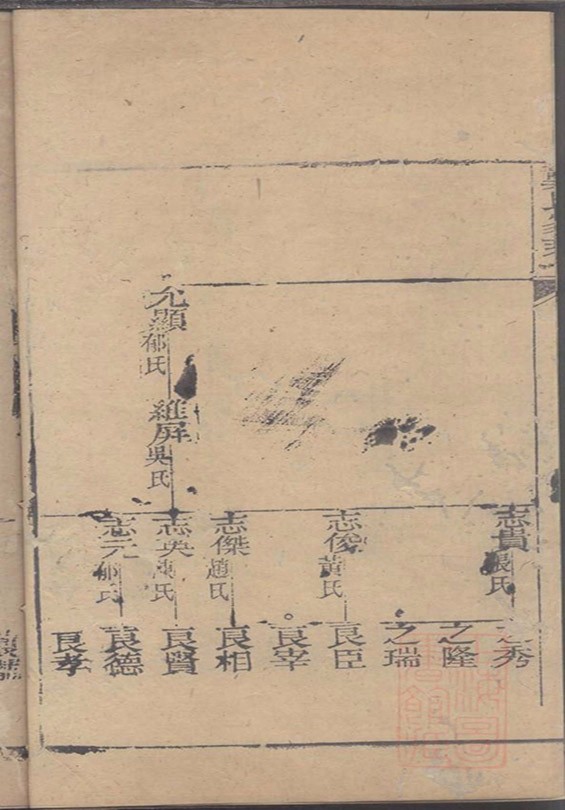 志貴張氏
之秀
之隆
之瑞
志俊黃氏
良臣
良宰
志傑趙氏
良相
允顯郁氏
維屏吳氏
志英
氏
良賢
志元郁氏
良德
良孝